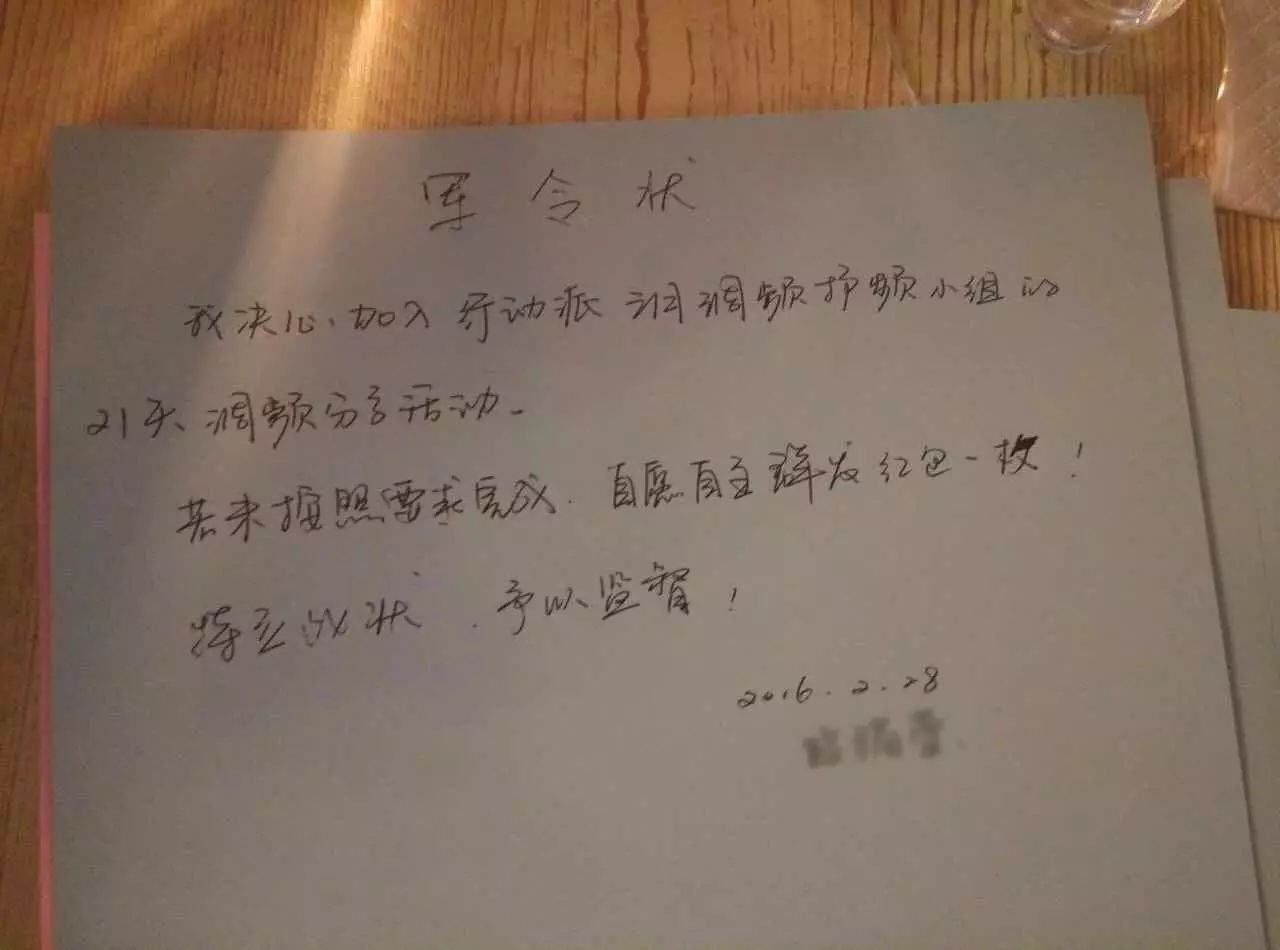 军令状
我决心加入行动派 调频抒频小组的
21天调频分享活动.
若未按照要求完成. 自愿自主群发红包一枚!
特立此状. 予以监督!
2016.2.28